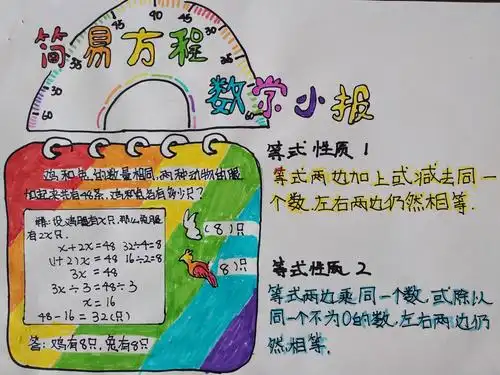 简易方程
数学小报
鸡和兔的数量相同,两种动物的腿
加起来共有48条,鸡和兔各有多少只?
解:设鸡腿有x只,那么兔腿
有2x只。
x+2x=48 32÷4=8
(1+2)x=48 16÷2=8
3x=48
3x÷3=48÷3
x=16
48-16=32(只)
答:鸡有8只,兔有8只。
(8)只
8)只
等式性质1
等式两边加上或减去同一
个数,左右两边仍然相等.
等式性质2
等式两边乘同一个数,或除以
同一个不为0的数,左右两边仍
然相等.